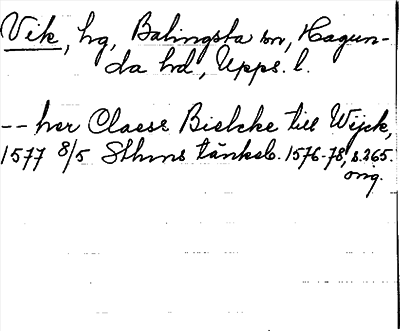 Vik, hg, Balingsta sn, Hagun-
da hd, Upps. l.
-- her Claess Bielcke till Wijck,
1577 8/5 Sthms tänkeb. 1576-78, s. 265.
orig.